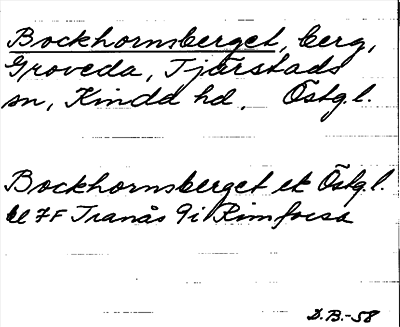 Bockhornsberget, berg,
Groveda, Tjärstads
sn, Kinda hd, Östg.l.
Bockhornsberget ek Östg.l.
bl 7F Tranås 9i Rimforsa
D.B.-58